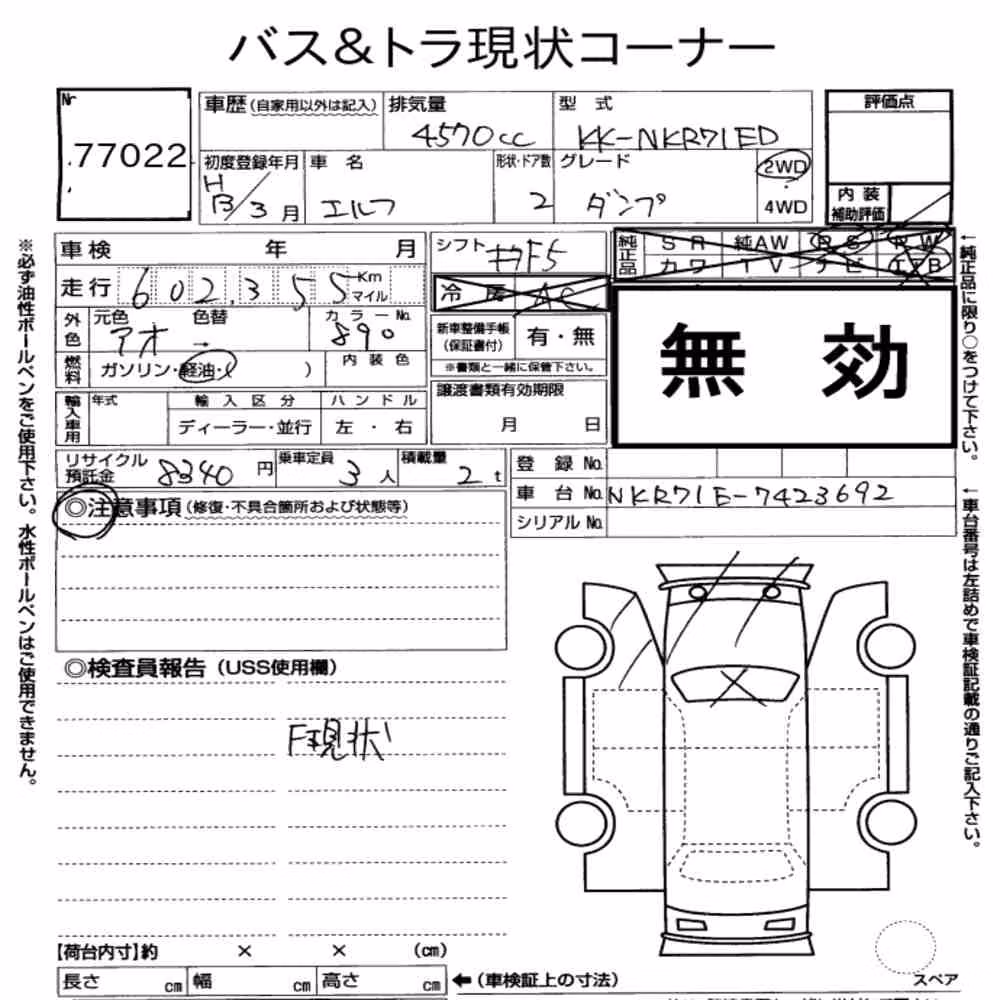 バス&トラ現状コーナー
Nr
77022
車歴(自家用以外は記入)
排気量
4570cc
型 式
KK-NKR71ED
評価点
初度登録年月
H13/3月
車 名
エルフ
形状・ドア数
2
グレード
ダンプ
2WD
・
4WD
内 装
補助評価
車検 年 月
シフト
F5
純正品
S R 純AW P S P W
カワ T V ナビ エアB
走行 602,355 Km マイル
冷 房 AC
外色
元色 色替
アオ →
カラーNo.
890
新車整備手帳
(保証書付)
有・無
※書類と一緒に保管下さい。
無 効
燃料
ガソリン・軽油・( )
内 装 色
譲渡書類有効期限
月 日
輸入車用
年式
輸 入 区 分
ディーラー・並行
ハ ン ド ル
左 ・ 右
リサイクル
預託金 8340円
乗車定員 3人
積載量 2t
登 録 No.
車 台 No. NKR71E-7423692
シリアル No.
◎注意事項(修復・不具合箇所および状態等)
◎検査員報告(USS使用欄)
F現状
【荷台内寸】約 × × (cm)
長さ cm 幅 cm 高さ cm
←(車検証上の寸法)
スペア
※必ず油性ボールペンをご使用下さい。水性ボールペンはご使用できません。
←純正品に限り○をつけて下さい。
←車台番号は左詰めで車検証記載の通りご記入下さい。